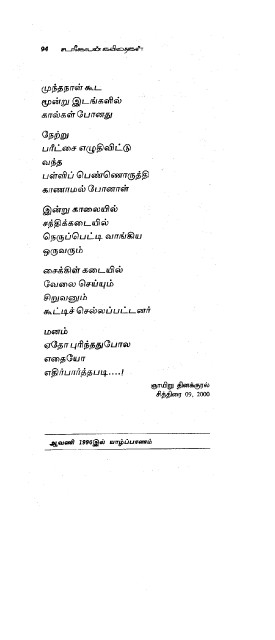 94
முந்தநாள் கூட
மூன்று இடங்களில்
கால்கள் போனது
நேற்று
பரீட்சை எழுதிவிட்டு
வந்த
பள்ளிப் பெண்ணொருத்தி
காணாமல் போனாள்
இன்று காலையில்
சந்திக்கடையில்
நெருப்பெட்டி வாங்கிய
ஒருவரும்
சைக்கிள் கடையில்
வேலை செய்யும்
சிறுவனும்
கூட்டிச் செல்லப்பட்டனர்
மனம்
ஏதோ புரிந்ததுபோல
எதையோ
எதிர்பார்த்தபடி....!
ஞாயிறு தினக்குரல்
சித்திரை 09, 2000
ஆவணி 1996இல் யாழ்ப்பாணம்